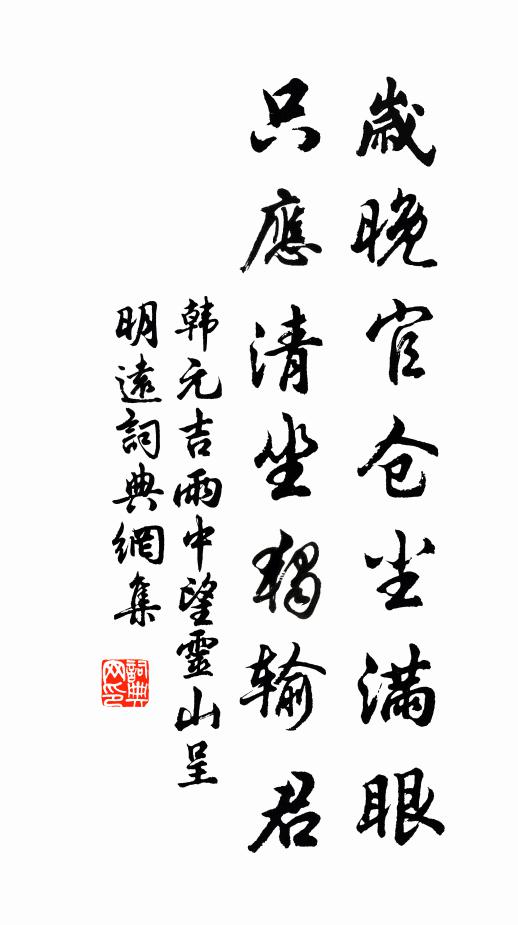 歲晚官仓尘滿眼
只應清坐獨输君
韩元吉雨中望靈山呈
明遠詞典網集
詞典
网印